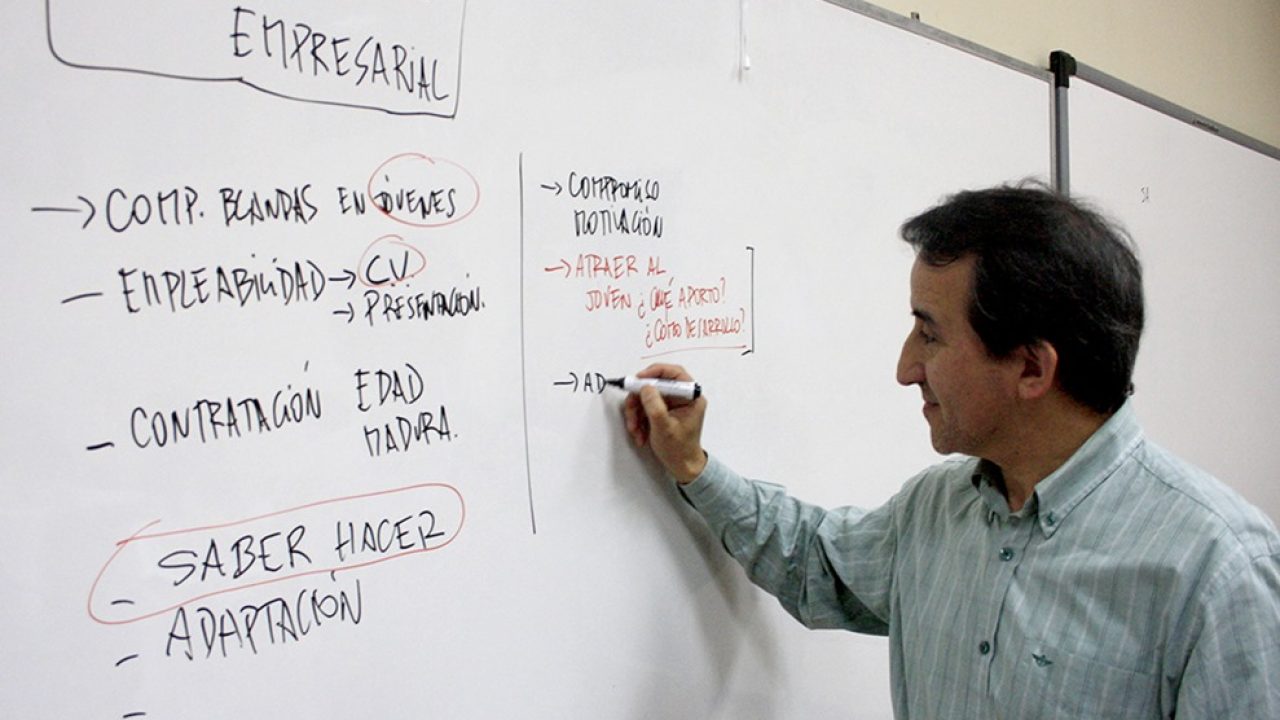 EMPRESARIAL
→ COMP. BLANDAS EN JÓVENES
— EMPLEABILIDAD → C.V.
→ PRESENTACIÓN.
— CONTRATACIÓN EDAD
MADURA.
— SABER HACER
— ADAPTACIÓN
—
→ COMPROMISO
MOTIVACIÓN
→ ATRAER AL
JOVEN ¿QUÉ APORTO?
¿COMO DESARROLLO?
→ AD